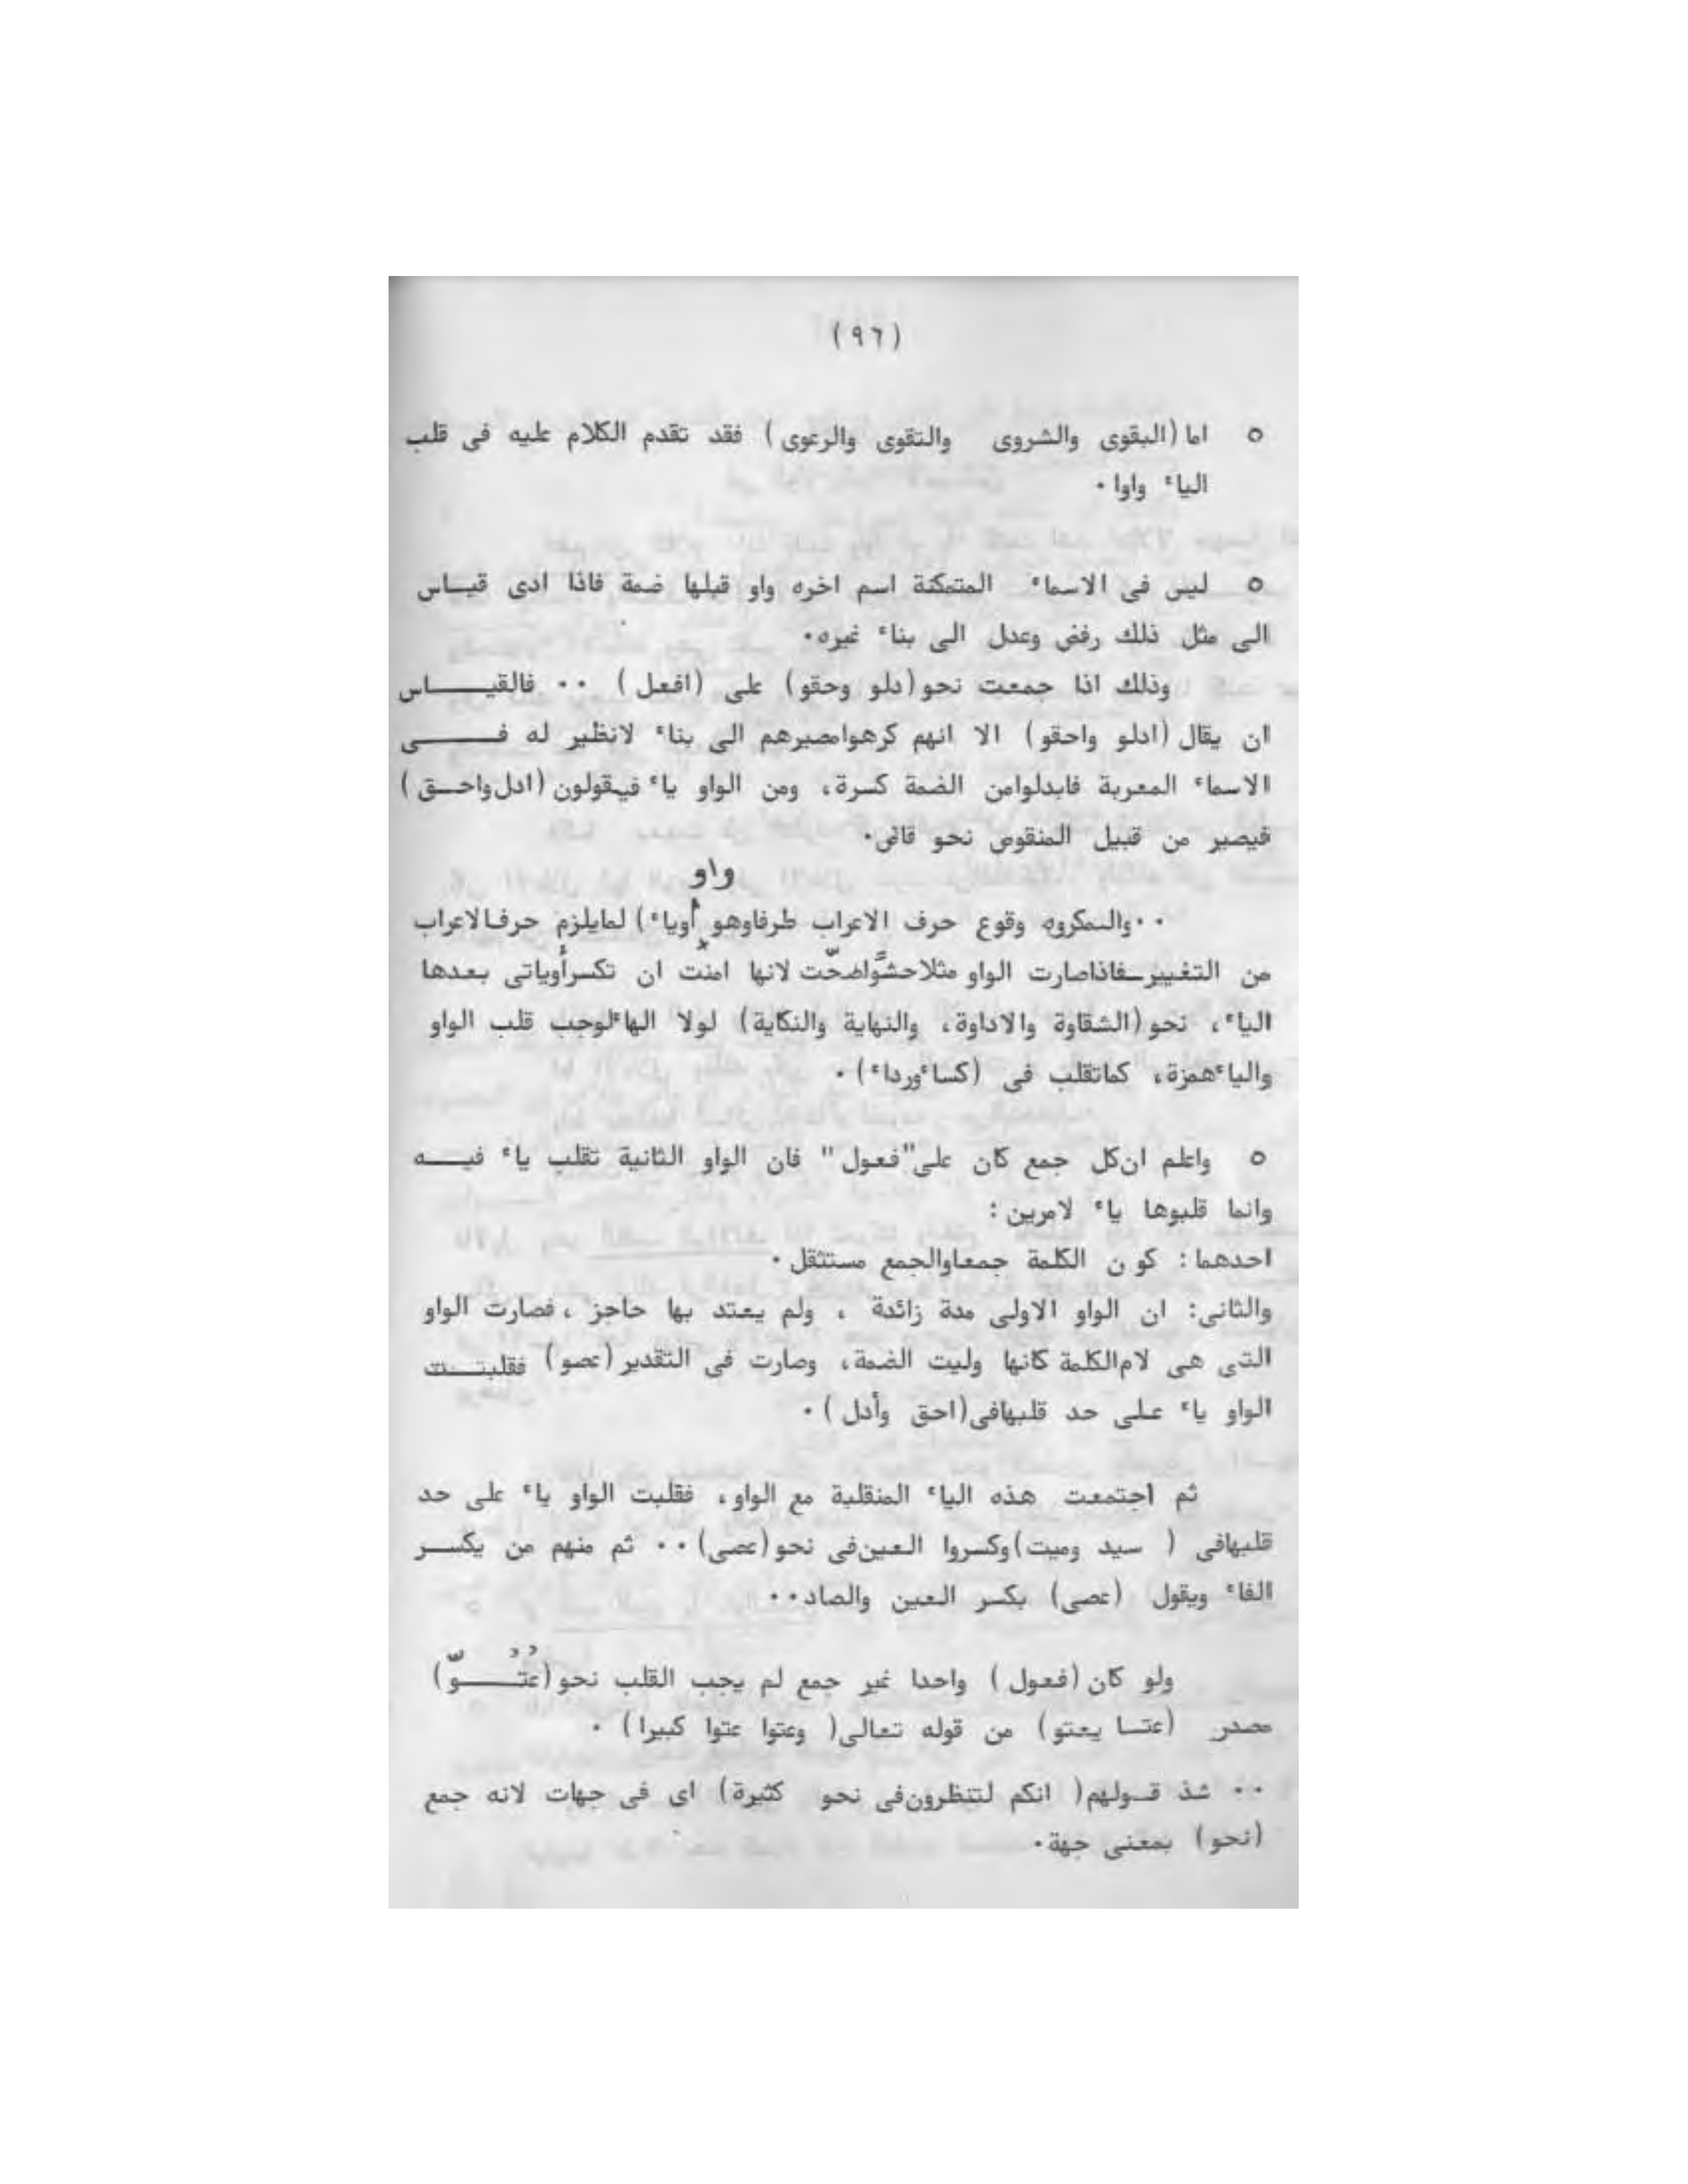 (٩٦)
٥ اما (البقوى والشروى والتقوى والرعوى) فقد تقدم الكلام عليه فى قلب
الياء واوا.
٥ ليس فى الاسماء المتمكنة اسم اخره واو قبلها ضمة فاذا ادى قياس
الى مثل ذلك رفض وعدل الى بناء غيره.
وذلك اذا جمعت نحو (دلو وحقو) على (افعل) .. فالقياس
ان يقال (ادلو واحقو) الا انهم كرهوا مصيرهم الى بناء لانظير له فى
الاسماء المعربة فابدلوا من الضمة كسرة، ومن الواو ياء فيقولون (ادل واحق)
فيصير من قبيل المنقوص نحو قاض.
واو
..والمكروه وقوع حرف الاعراب طرفا وهو أوياء) لما يلزم حرف الاعراب
من التغيير_فاذا صارت الواو مثلا حشوًا صحّت لانها امنت ان تكسر أوياتى بعدها
الياء، نحو (الشقاوة والاداوة، والنهاية والنكاية) لولا الهاء لوجب قلب الواو
والياء همزة، كما تقلب فى (كساء ورداء).
٥ واعلم ان كل جمع كان على "فعول" فان الواو الثانية تقلب ياء فيه
وانما قلبوها ياء لامرين:
احدهما: كون الكلمة جمعا والجمع مستثقل.
والثانى: ان الواو الاولى مدة زائدة ، ولم يعتد بها حاجز ، فصارت الواو
التى هى لام الكلمة كانها وليت الضمة، وصارت فى التقدير (عصو) فقلبت
الواو ياء على حد قلبها فى (احق وأدل).
ثم اجتمعت هذه الياء المنقلبة مع الواو، فقلبت الواو ياء على حد
قلبها فى ( سيد وميت) وكسروا العين فى نحو (عصى) .. ثم منهم من يكسر
الفاء ويقول (عصى) بكسر العين والصاد..
ولو كان (فعول) واحدا غير جمع لم يجب القلب نحو (عُتُوّ)
مصدر (عتا يعتو) من قوله تعالى( وعتوا عتوا كبيرا) .
.. شذ قولهم( انكم لتنظرون فى نحو كثيرة) اى فى جهات لانه جمع
(نحو) بمعنى جهة.